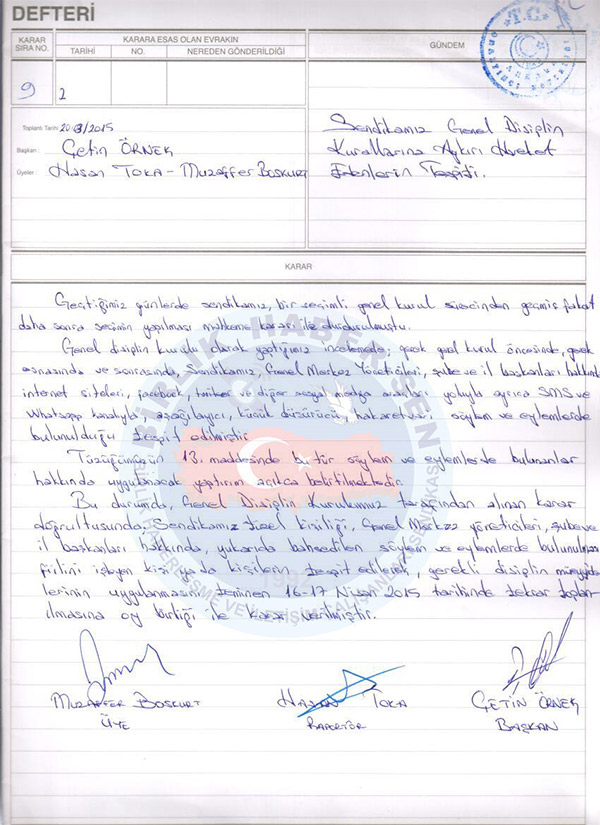 DEFTERİ
KARAR SIRA NO.
KARARA ESAS OLAN EVRAKIN
TARİHİ NO. NEREDEN GÖNDERİLDİĞİ
GÜNDEM
T.C.
9 2
Toplantı Tarihi 20/03/2015
Başkan: Çetin ÖRNEK
Üyeler: Hasan TOKA - Muzaffer BOSKURT
Sendikamız Genel Disiplin
Kurallarına Aykırı Hareket
Edenlerin Tespiti.
KARAR
Geçtiğimiz günlerde sendikamız, bir seçimli genel kurul sürecinden geçmiş fakat
daha sonra seçimin yapılması mahkeme kararı ile durdurulmuştu.
Genel disiplin kurulu olarak yaptığımız incelemede; gerek genel kurul öncesinde, gerek
esnasında ve sonrasında, Sendikamız, Genel Merkez Yöneticileri, şube ve il başkanları hakkında
internet siteleri, facebook, twitter ve diğer sosyal medya araçları yoluyla ayrıca SMS ve
Whatsapp kanalıyla, aşağılayıcı, küçük düşürücü, hakaretari söylem ve eylemlerde
bulunulduğu tespit edilmiştir
Tüzüğümüzün 13. maddesinde bu tür söylem ve eylemlerde bulunanlar
hakkında uygulanacak yaptırım açıkca belirtilmektedir.
Bu durumda, Genel Disiplin Kurulumuz tarafından alınan karar
doğrultusunda Sendikamız tüzel kişiliği, Genel Merkez yöneticileri, şube ve
il başkanları hakkında, yukarıda bahsedilen söylem ve eylemlerde bulunulması
fiilini işleyen kişi ya da kişilerin tespit edilerek, gerekli disiplin müeyyide
lerinin uygulanmasını teminen 16-17 Nisan 2015 tarihinde tekrar toplan
ılmasına oy birliği ile karar verilmiştir.
BİRLİK HABER-SEN
1992
MUZAFFER BOSKURT HASAN TOKA ÇETİN ÖRNEK
ÜYE RAPORTÖR BAŞKAN